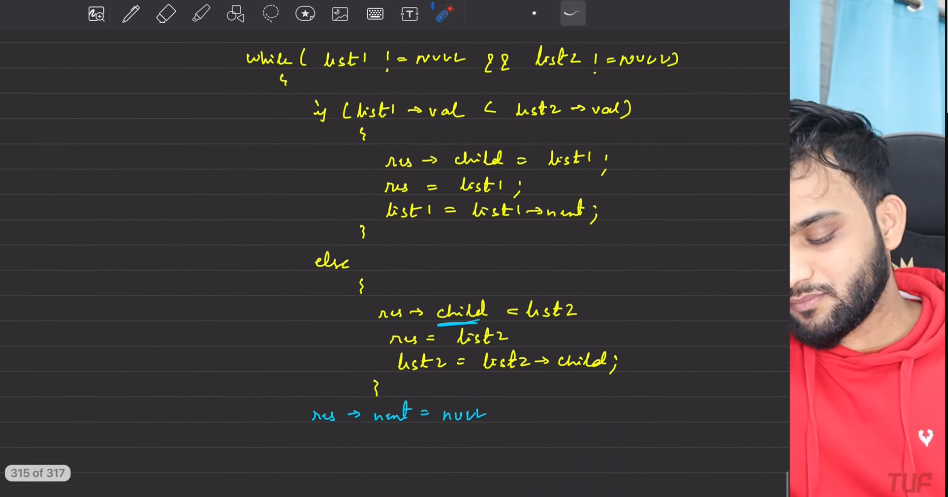 while( list1 != NULL && list2 != NULL)
{
if (list1 → val < list2 → val)
{
res → child = list1;
res = list1;
list1 = list1→next;
}
else
{
res → child = list2
res = list2
list2 = list2→child;
}
res → next = NULL
315 of 317
TUF